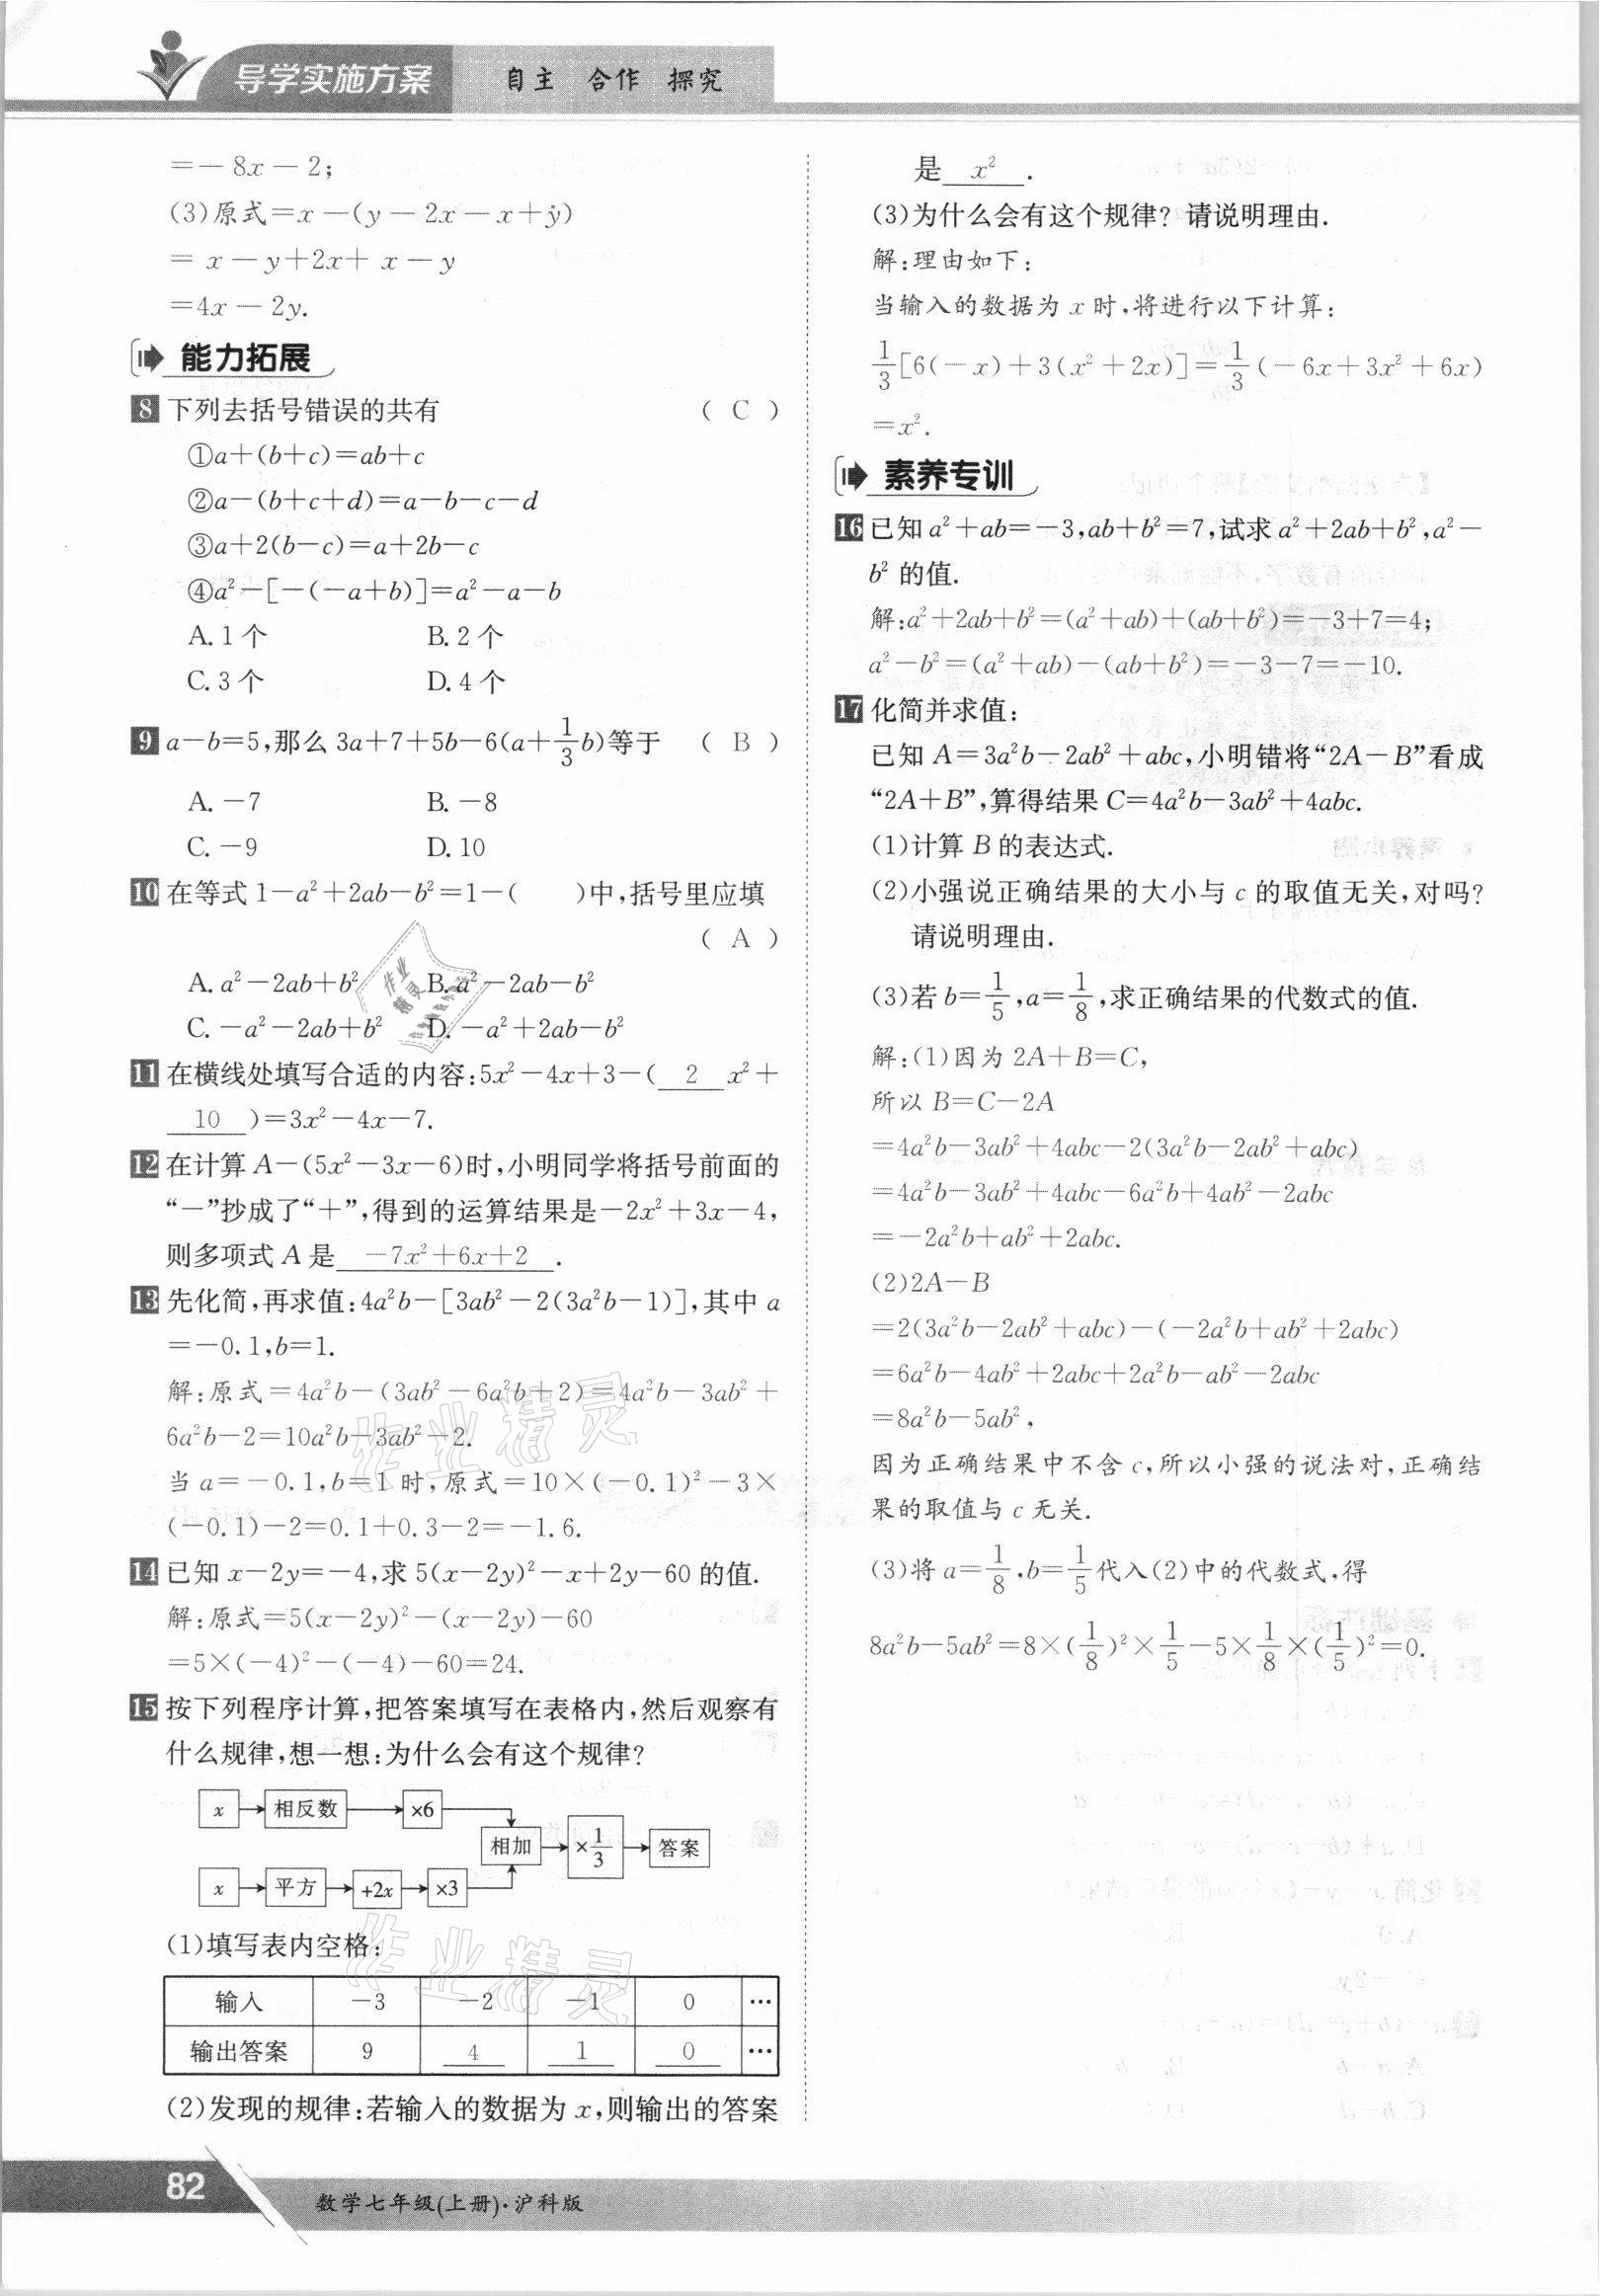 导学实施方案
自主 合作 探究
=-8x-2;
(3)原式=x-(y-2x-x+y)
=x-y+2x+x-y
=4x-2y.
能力拓展
8 下列去括号错误的共有 ( C )
①a+(b+c)=ab+c
②a-(b+c+d)=a-b-c-d
③a+2(b-c)=a+2b-c
④a²-[-(-a+b)]=a²-a-b
A. 1 个 B. 2 个
C. 3 个 D. 4 个
9 a-b=5,那么 3a+7+5b-6(a+1/3b)等于 ( B )
A. -7 B. -8
C. -9 D. 10
10 在等式 1-a²+2ab-b²=1-( )中,括号里应填
( A )
A. a²-2ab+b² B. a²-2ab-b²
C. -a²-2ab+b² D. -a²+2ab-b²
11 在横线处填写合适的内容:5x²-4x+3-( 2 x²+
10 )=3x²-4x-7.
12 在计算 A-(5x²-3x-6)时,小明同学将括号前面的
“-”抄成了“+”,得到的运算结果是-2x²+3x-4,
则多项式 A 是 -7x²+6x+2 .
13 先化简,再求值:4a²b-[3ab²-2(3a²b-1)],其中 a
=-0.1,b=1.
解:原式=4a²b-(3ab²-6a²b+2)=4a²b-3ab²+
6a²b-2=10a²b-3ab²-2.
当 a=-0.1,b=1 时,原式=10×(-0.1)²-3×
(-0.1)-2=0.1+0.3-2=-1.6.
14 已知 x-2y=-4,求 5(x-2y)²-x+2y-60 的值.
解:原式=5(x-2y)²-(x-2y)-60
=5×(-4)²-(-4)-60=24.
15 按下列程序计算,把答案填写在表格内,然后观察有
什么规律,想一想:为什么会有这个规律?
x 相反数 ×6
相加 ×1/3 答案
x 平方 +2x ×3
(1)填写表内空格:
输入 -3 -2 -1 0 …
输出答案 9 4 1 0 …
(2)发现的规律:若输入的数据为 x,则输出的答案
是 x² .
(3)为什么会有这个规律? 请说明理由.
解:理由如下:
当输入的数据为 x 时,将进行以下计算:
1/3[6(-x)+3(x²+2x)]=1/3(-6x+3x²+6x)
=x².
素养专训
16 已知 a²+ab=-3,ab+b²=7,试求 a²+2ab+b²,a²-
b² 的值.
解:a²+2ab+b²=(a²+ab)+(ab+b²)=-3+7=4;
a²-b²=(a²+ab)-(ab+b²)=-3-7=-10.
17 化简并求值:
已知 A=3a²b-2ab²+abc,小明错将“2A-B”看成
“2A+B”,算得结果 C=4a²b-3ab²+4abc.
(1)计算 B 的表达式.
(2)小强说正确结果的大小与 c 的取值无关,对吗?
请说明理由.
(3)若 b=1/5,a=1/8,求正确结果的代数式的值.
解:(1)因为 2A+B=C,
所以 B=C-2A
=4a²b-3ab²+4abc-2(3a²b-2ab²+abc)
=4a²b-3ab²+4abc-6a²b+4ab²-2abc
=-2a²b+ab²+2abc.
(2)2A-B
=2(3a²b-2ab²+abc)-(-2a²b+ab²+2abc)
=6a²b-4ab²+2abc+2a²b-ab²-2abc
=8a²b-5ab²,
因为正确结果中不含 c,所以小强的说法对,正确结
果的取值与 c 无关.
(3)将 a=1/8,b=1/5代入(2)中的代数式,得
8a²b-5ab²=8×(1/8)²×1/5-5×1/8×(1/5)²=0.
作业精灵
作业精灵
作业精灵
82
数学七年级(上册)·沪科版